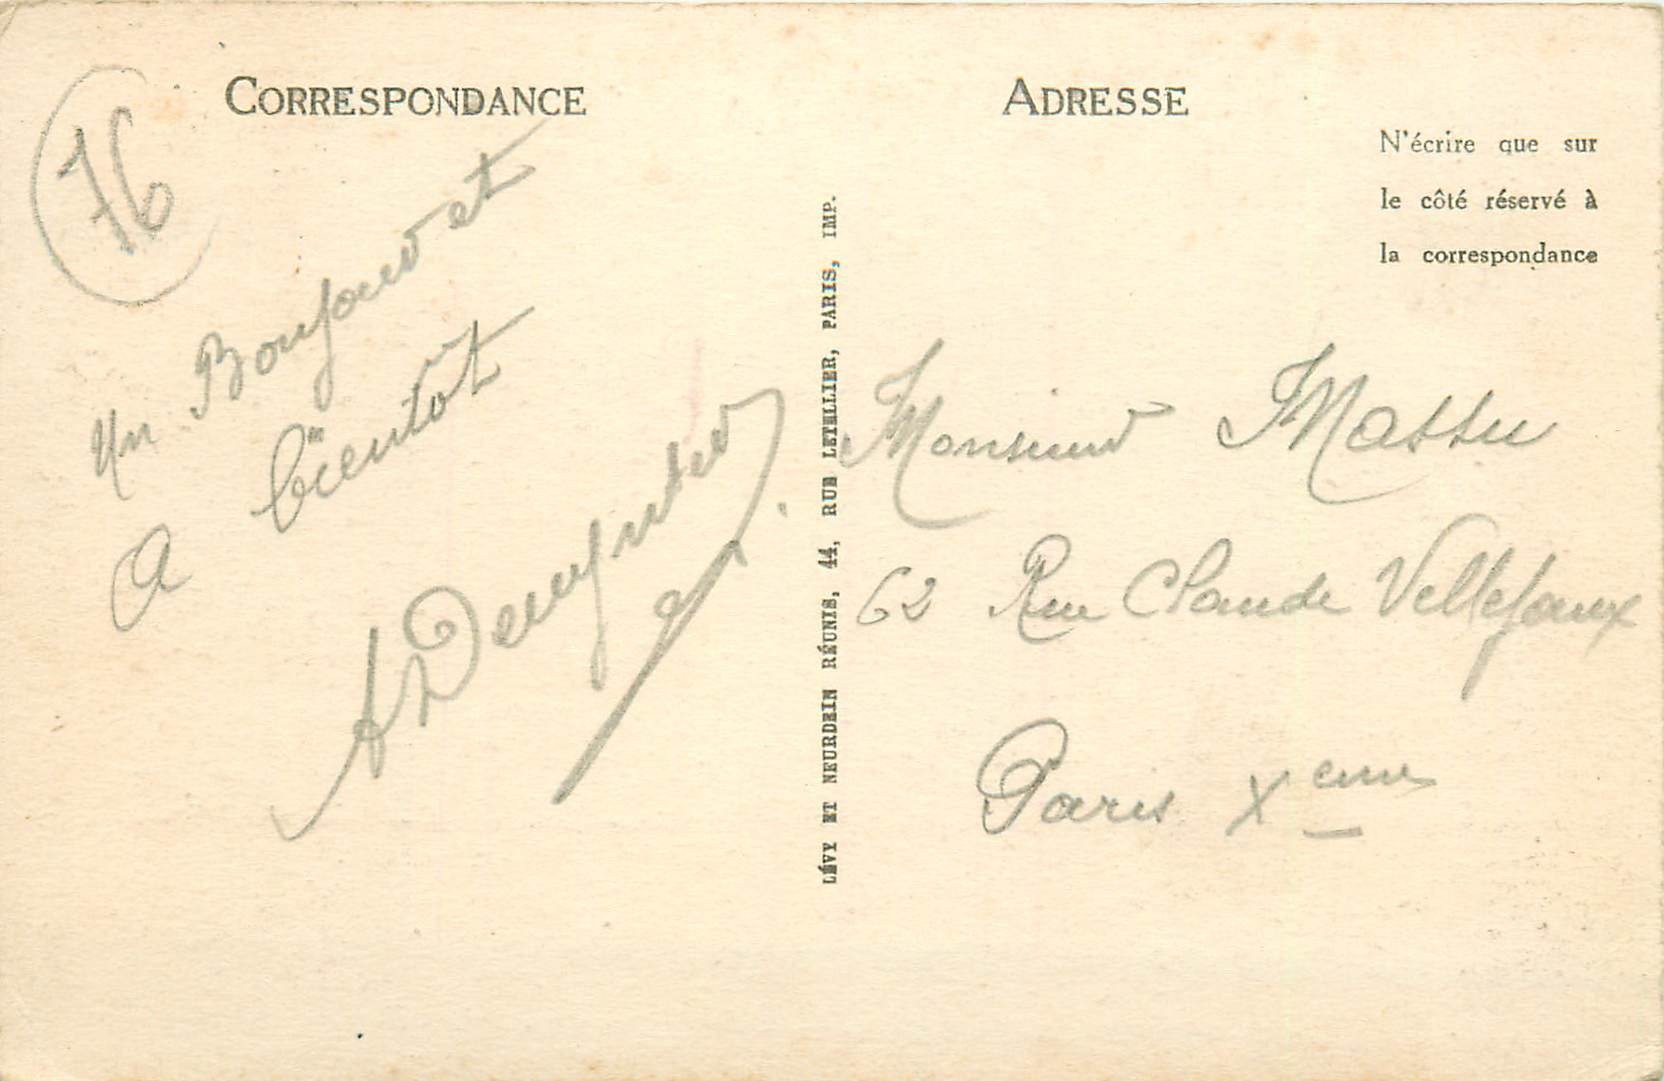 CORRESPONDANCE
76
Un Bonjour et
A bientôt
ADRESSE
N'écrire que sur
le côté réservé à
la correspondance
LÉVY ET NEURDEIN RÉUNIS, 44, RUE LETELLIER, PARIS, IMP.
Monsieur Massu
62 Rue Claude Vellefaux
Paris Xeme